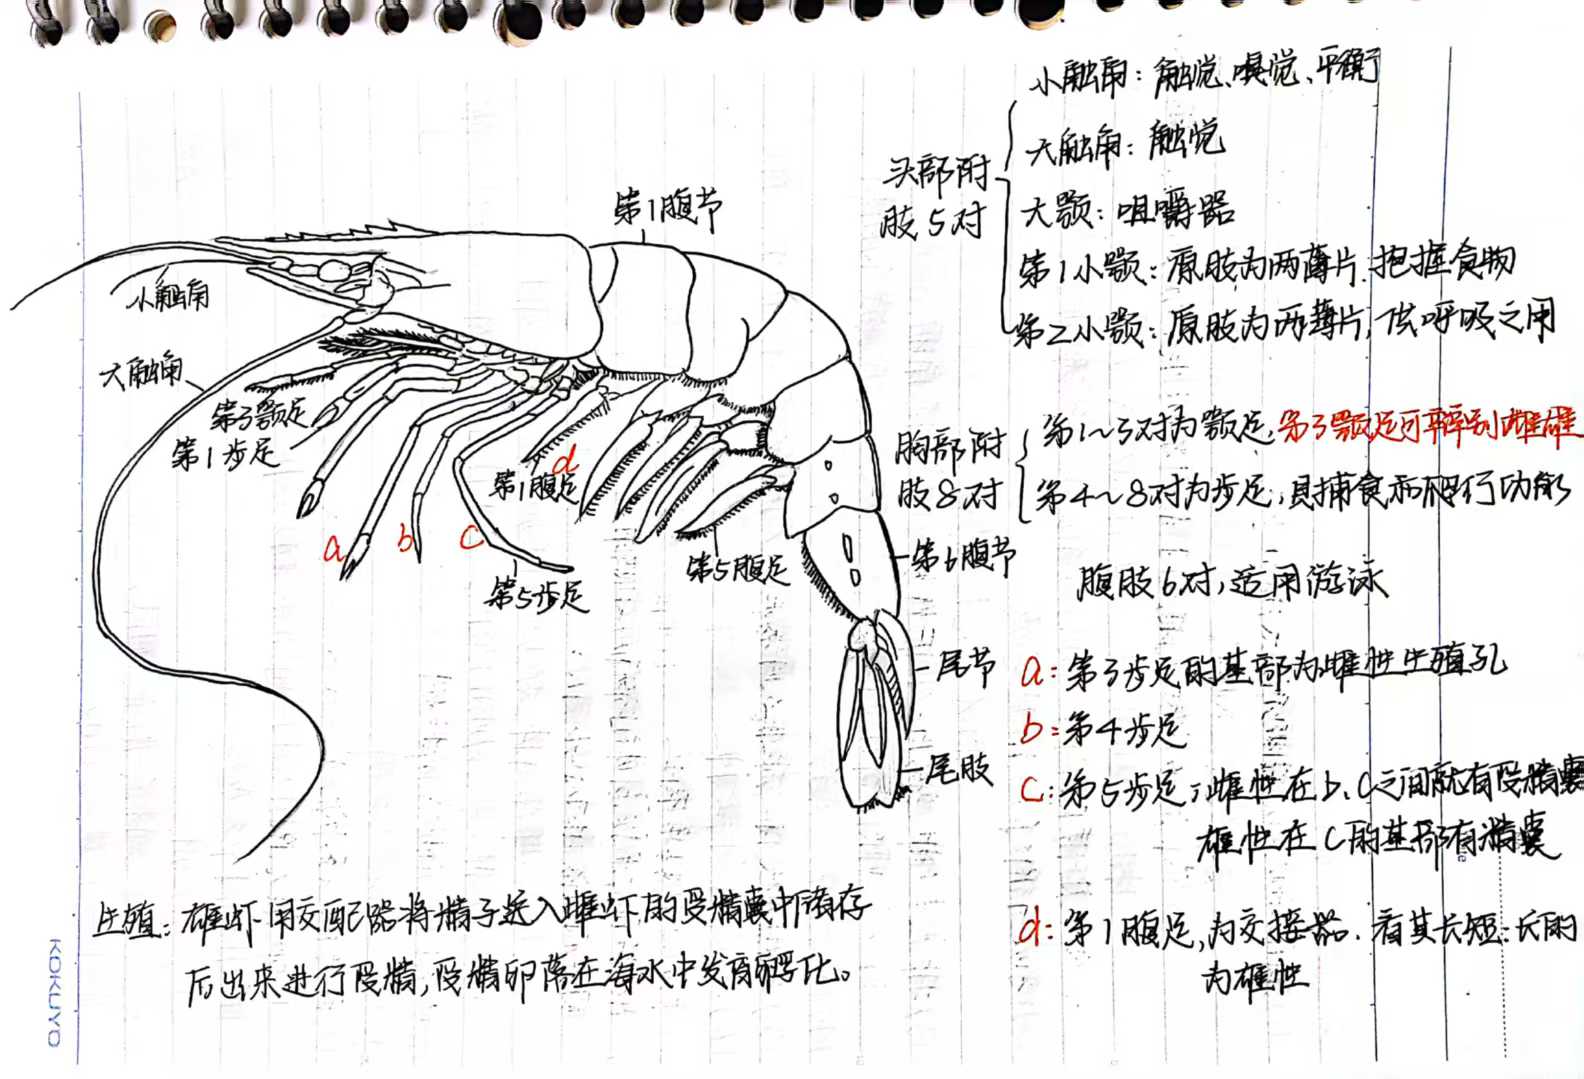 小触角：触觉、嗅觉、平衡
大触角：触觉
头部附
肢5对
大颚：咀嚼器
第1小颚：原肢为两薄片.抱握食物
第2小颚：原肢为两薄片,供呼吸之用
第1腹节
小触角
大触角
第3颚足
第1步足
胸部附
肢8对
第1~3对为颚足,第3颚足可辨别雌雄
第4~8对为步足,具捕食和爬行功能
d
第1腹足
a
b
c
第5步足
第5腹足
第6腹节
腹肢6对,适用游泳
尾节
尾肢
a:第3步足的基部为雌性生殖孔
b:第4步足
c:第5步足;雌性在b、c之间就有受精囊
雄性在c的基部有精囊
d:第1腹足,为交接器.看其长短:长的
为雄性
生殖：雄虾用交配器将精子送入雌虾的受精囊中储存
后出来进行受精,受精卵落在海水中发育孵化。
KOKUYO